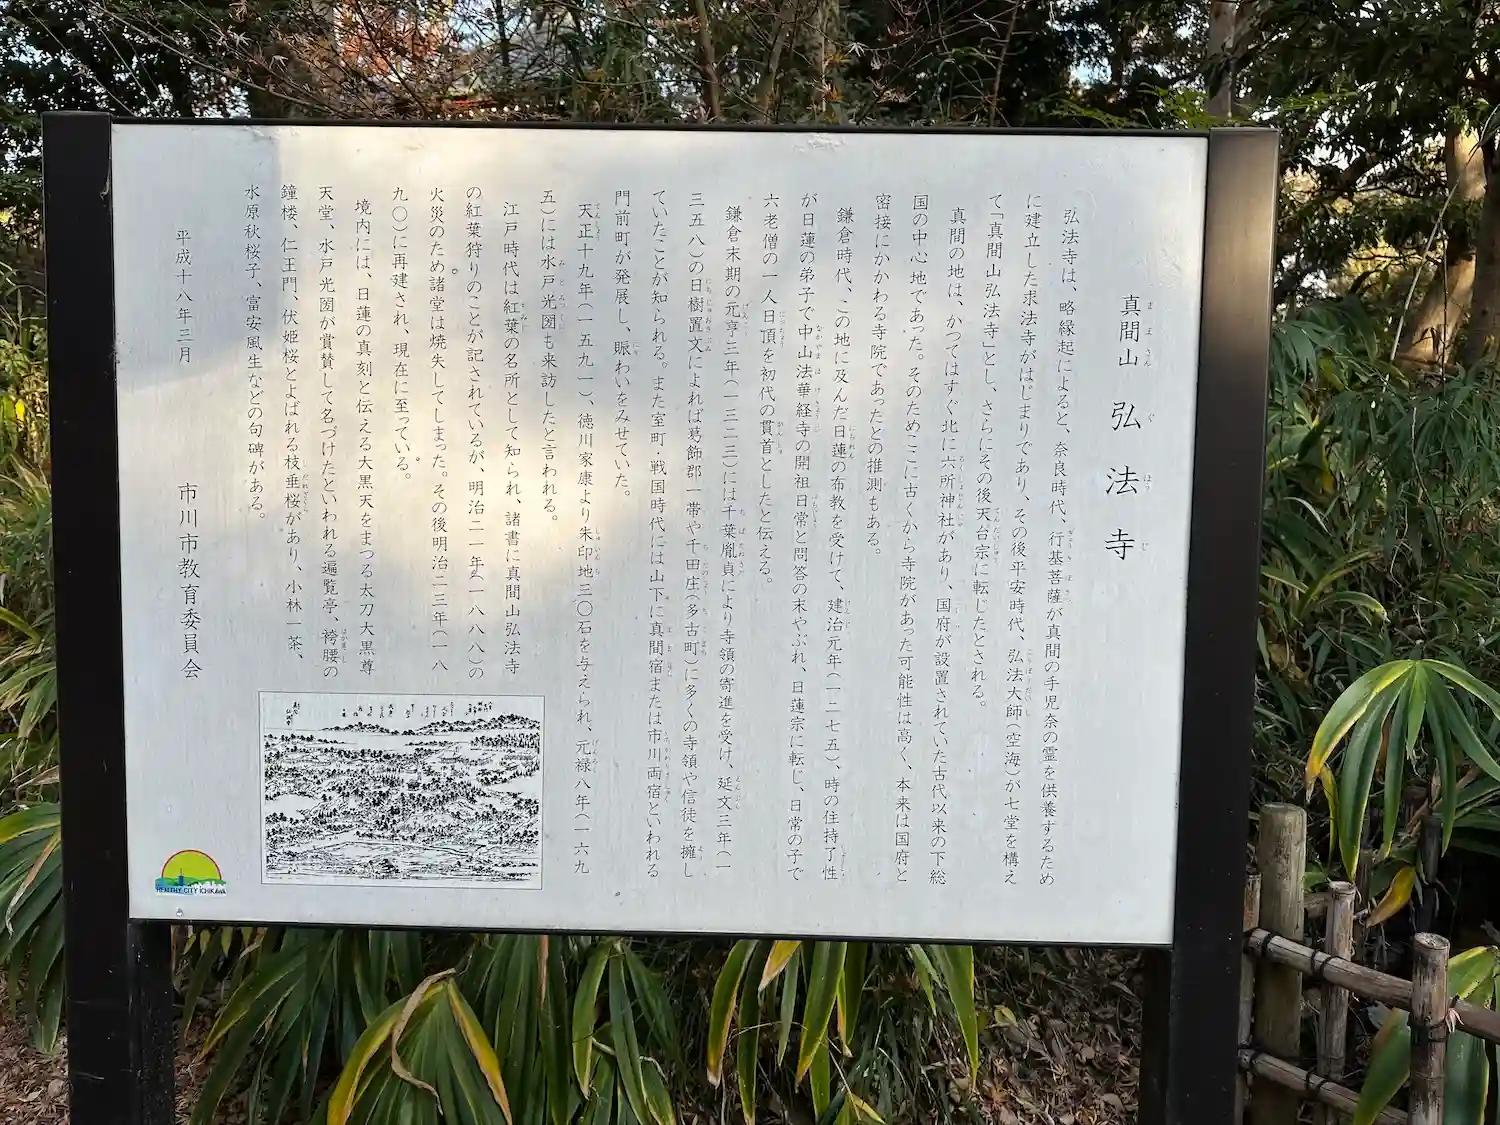 真間山 弘法寺
弘法寺は、略縁起によると、奈良時代、行基菩薩が真間の手児奈の霊を供養するため
に建立した求法寺がはじまりであり、その後平安時代、弘法大師（空海）が七堂を構え
て「真間山弘法寺」とし、さらにその後天台宗に転じたとされる。
真間の地は、かつてはすぐ北に六所神社があり、国府が設置されていた古代以来の下総
国の中心地であった。そのためここに古くから寺院があった可能性は高く、本来は国府と
密接にかかわる寺院であったとの推測もある。
鎌倉時代、この地に及んだ日蓮の布教を受けて、建治元年（一二七五）、時の住持了性
が日蓮の弟子で中山法華経寺の開祖日常と問答の末やぶれ、日蓮宗に転じ、日常の子で
六老僧の一人日頂を初代の貫首としたと伝える。
鎌倉末期の元亨三年（一三二三）には千葉胤貞により寺領の寄進を受け、延文三年（一
三五八）の日樹置文によれば葛飾郡一帯や千田庄（多古町）に多くの寺領や信徒を擁し
ていたことが知られる。また室町・戦国時代には山下に真間宿または市川両宿といわれる
門前町が発展し、賑わいをみせていた。
天正十九年（一五九一）、徳川家康より朱印地三〇石を与えられ、元禄八年（一六九
五）には水戸光圀も来訪したと言われる。
江戸時代は紅葉の名所として知られ、諸書に真間山弘法寺
の紅葉狩りのことが記されているが、明治二一年（一八八八）の
火災のため諸堂は焼失してしまった。その後明治二三年（一八
九〇）に再建され、現在に至っている。
境内には、日蓮の真刻と伝える大黒天をまつる太刀大黒尊
天堂、水戸光圀が賞賛して名づけたといわれる遍覧亭、袴腰の
鐘楼、仁王門、伏姫桜とよばれる枝垂桜があり、小林一茶、
水原秋桜子、富安風生などの句碑がある。
平成十八年三月
市川市教育委員会
HEALTHY CITY ICHIKAWA